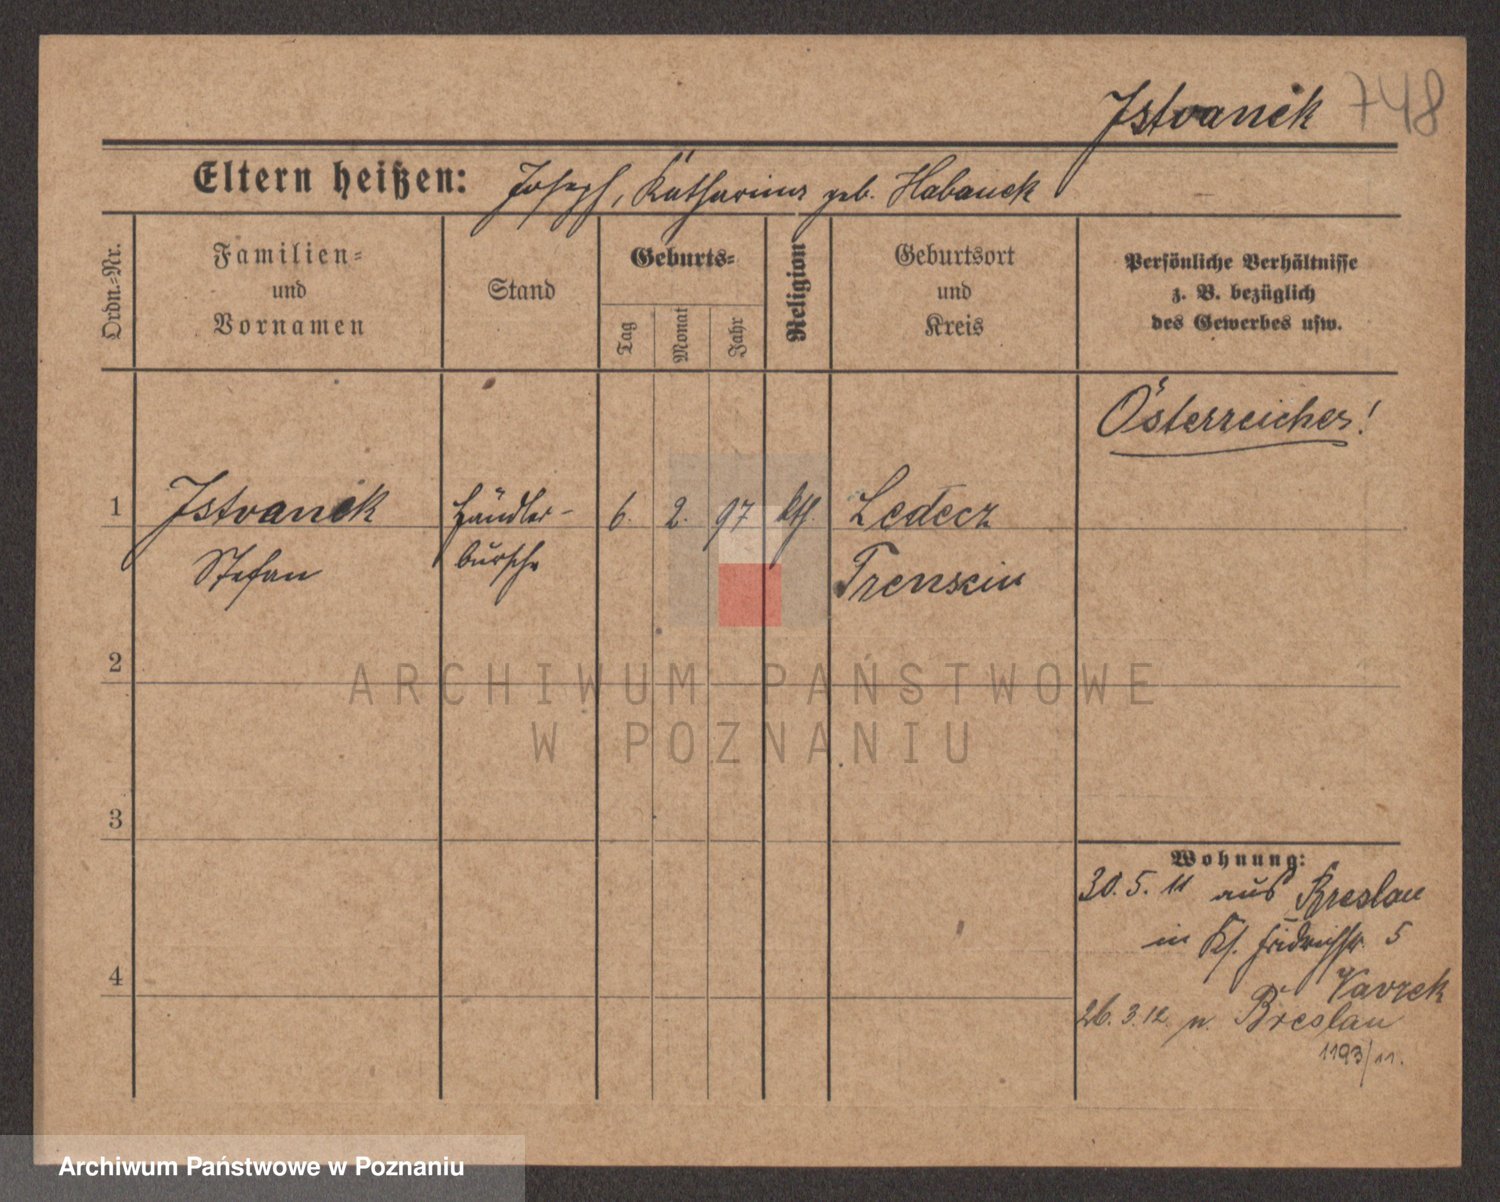 Istvanek 748
Eltern heißen: Joseph, Katharina geb. Habanek
Ordn.=Nr.
Familien=
und
Vornamen
Stand
Geburts=
Tag
Monat
Jahr
Religion
Geburtsort
und
Kreis
Persönliche Verhältnisse
z. B. bezüglich
des Gewerbes usw.
Österreicher!
1 Istvanek Händler- 6. 2. 97 kth. Ledecz
Stefan bursche Trenscin
2
ARCHIWUM PAŃSTWOWE
W POZNANIU
3
Wohnung:
30.5.11 aus Breslau
in Kl. 5
Vavrek
4
26.3.12 n. Breslau
1193/11.
Archiwum Państwowe w Poznaniu